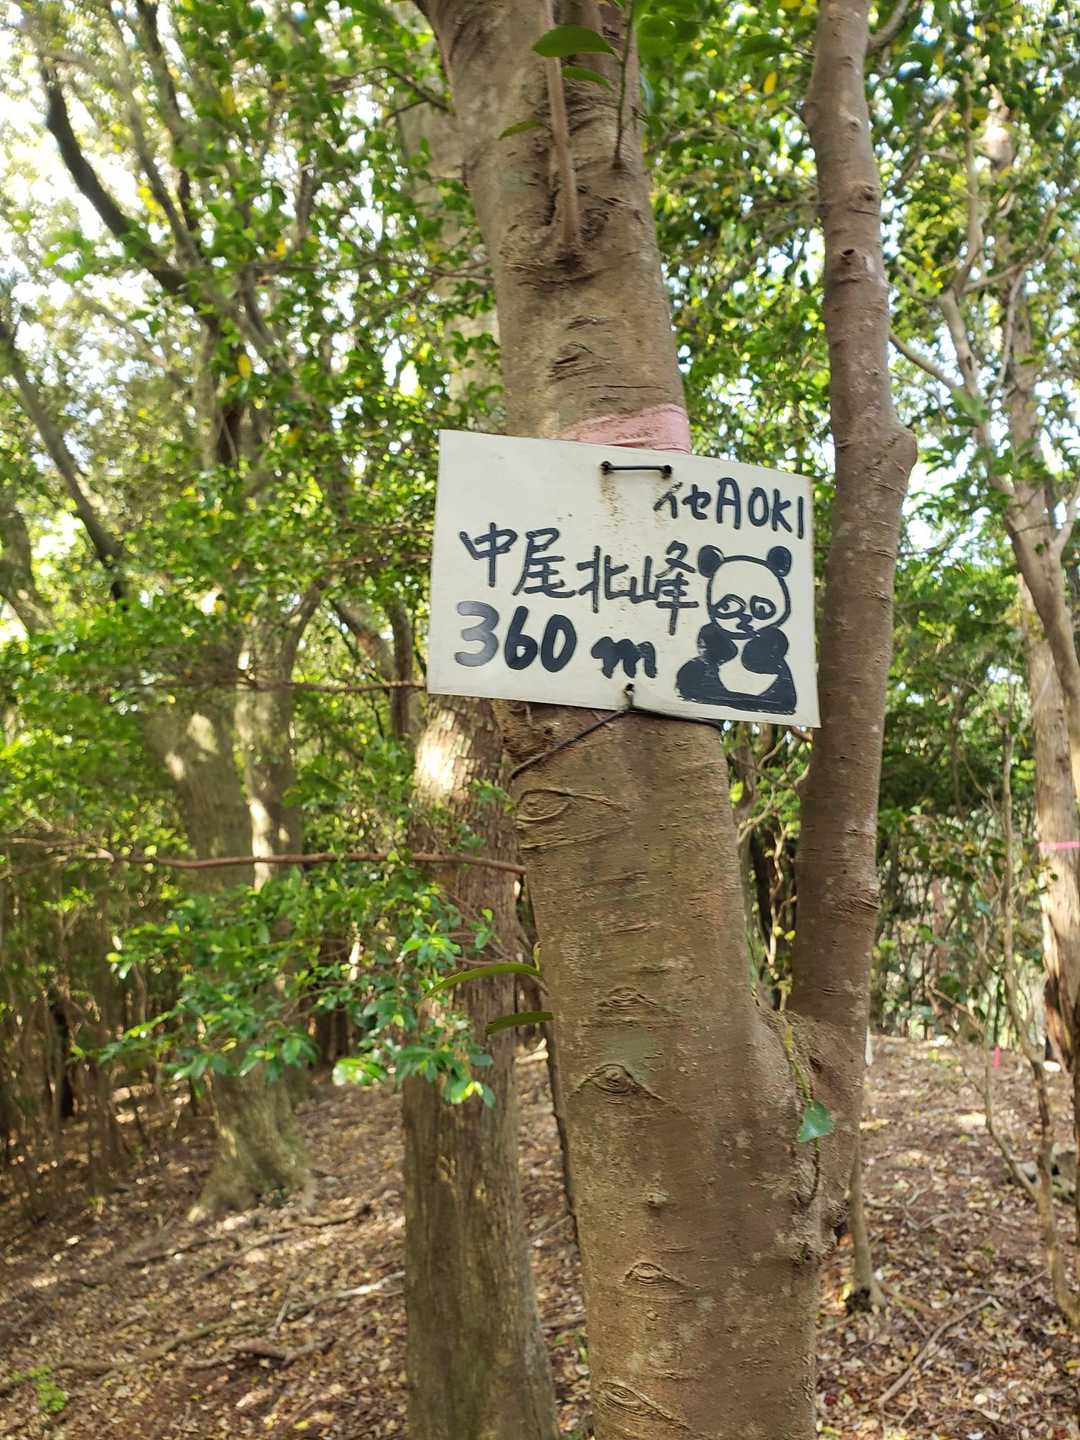 イセAOKI
中尾北峰
360m